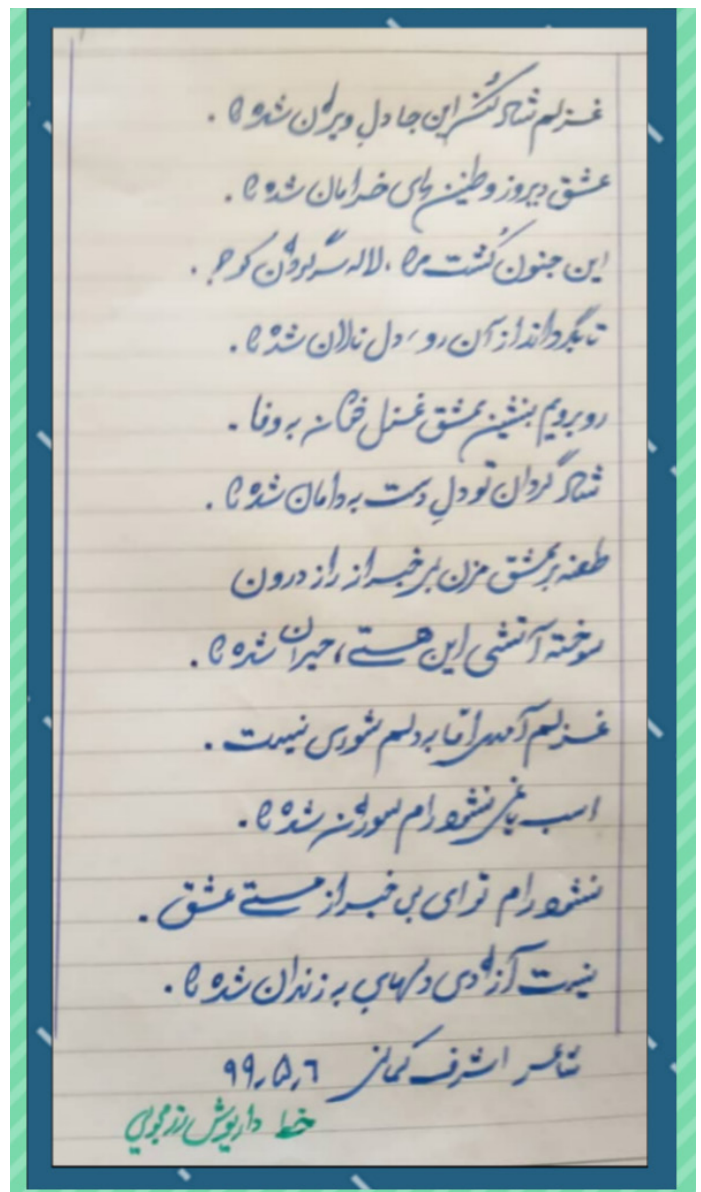 غزلم شاد کنش این جا دل ویران شده ام.
عشق دیروز و طنین های خرامان شده ام.
این جنون کشت مرا، لاله سرگردان کو
تا بگرداند از آن رو، دل نالان شده ام.
روبرویم بنشین عشق غزل خوان به وفا.
شاد گردان تو دل دست به دامان شده ام.
طعنه بر عشق مزن بی خبر از راز درون
سوخته آتشی این هستی، حیران شده ام.
غزلم آمدی اما به دلم شوری نیست.
اسب یاغی نشود رام سواران شده ام.
نشود رام تو ای بی خبر از مستی عشق.
نیست آزادی دلهای به زندان شده ام.
شاعر اشرف کمانی ۹۹٫۵٫۶
خط داریوش رزمجوئی